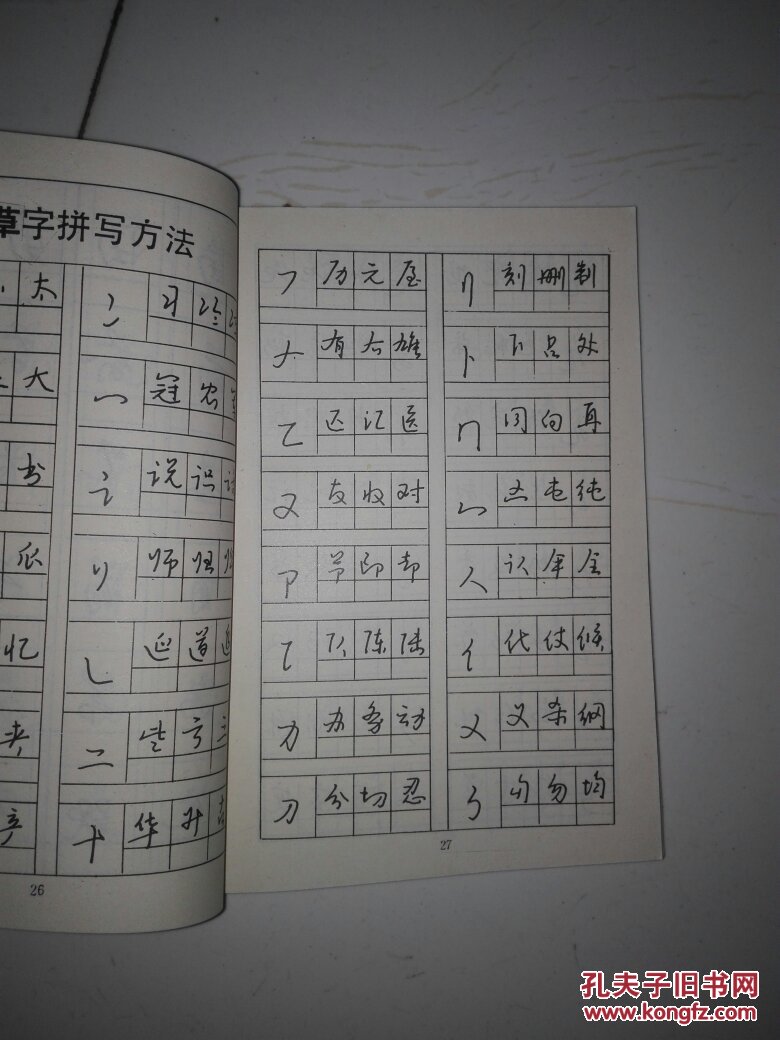 草字拼写方法
太
大
书
瓜
忆
夹
冫 习 冷
冖 冠 农
讠 说 识
师 归
辶 逆 道
二 些 亏
十 华 升
26
厂 历 元 屋
ナ 有 右 雄
匚 区 汇 医
又 友 收 对
卩 节 即 却
阝 队 陈 陆
力 办 务 动
刀 分 切 忍
刂 刻 删 制
卜 下 占 处
冂 同 向 再
凵 凶 屯 纯
人 认 年 全
亻 代 仗 候
乂 义 杀 纲
勹 勺 勿 均
27
孔夫子旧书网
www.kongfz.com